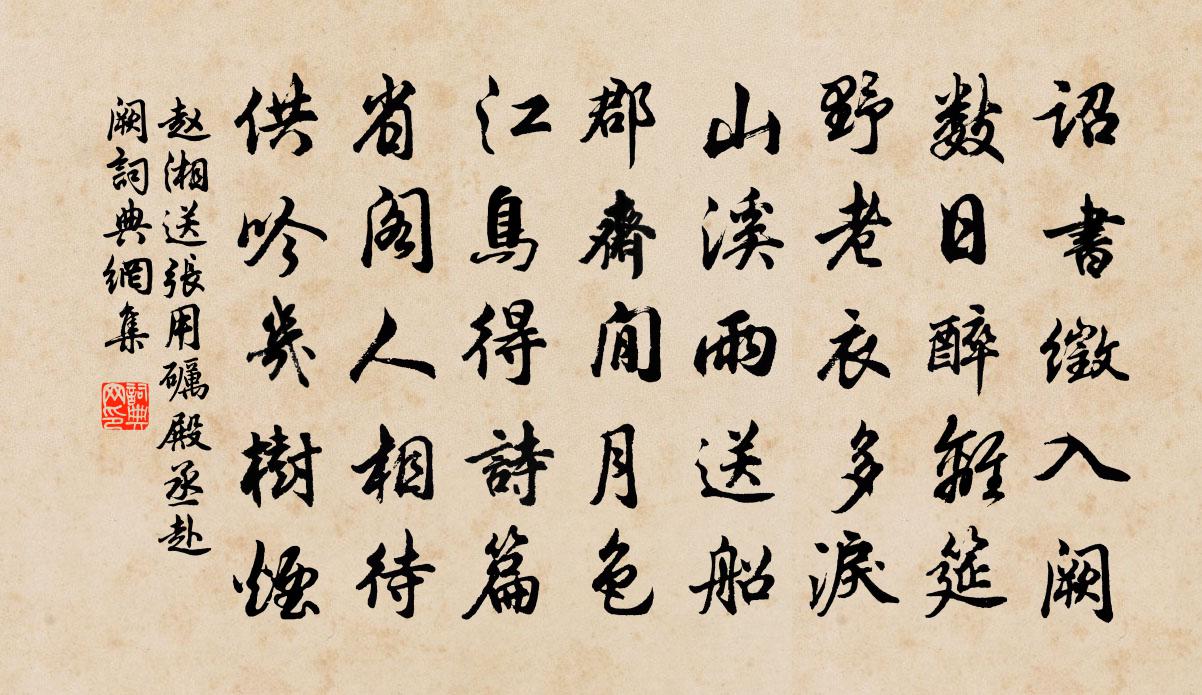 詔書徵入阙
數日醉離筵
野老衣多淚
山溪雨送船
郡齋閒月色
江鳥得詩篇
省閣人相待
供吟幾樹煙
赵湘送張用礪殿丞赴
阙詞典網集
詞典
网印